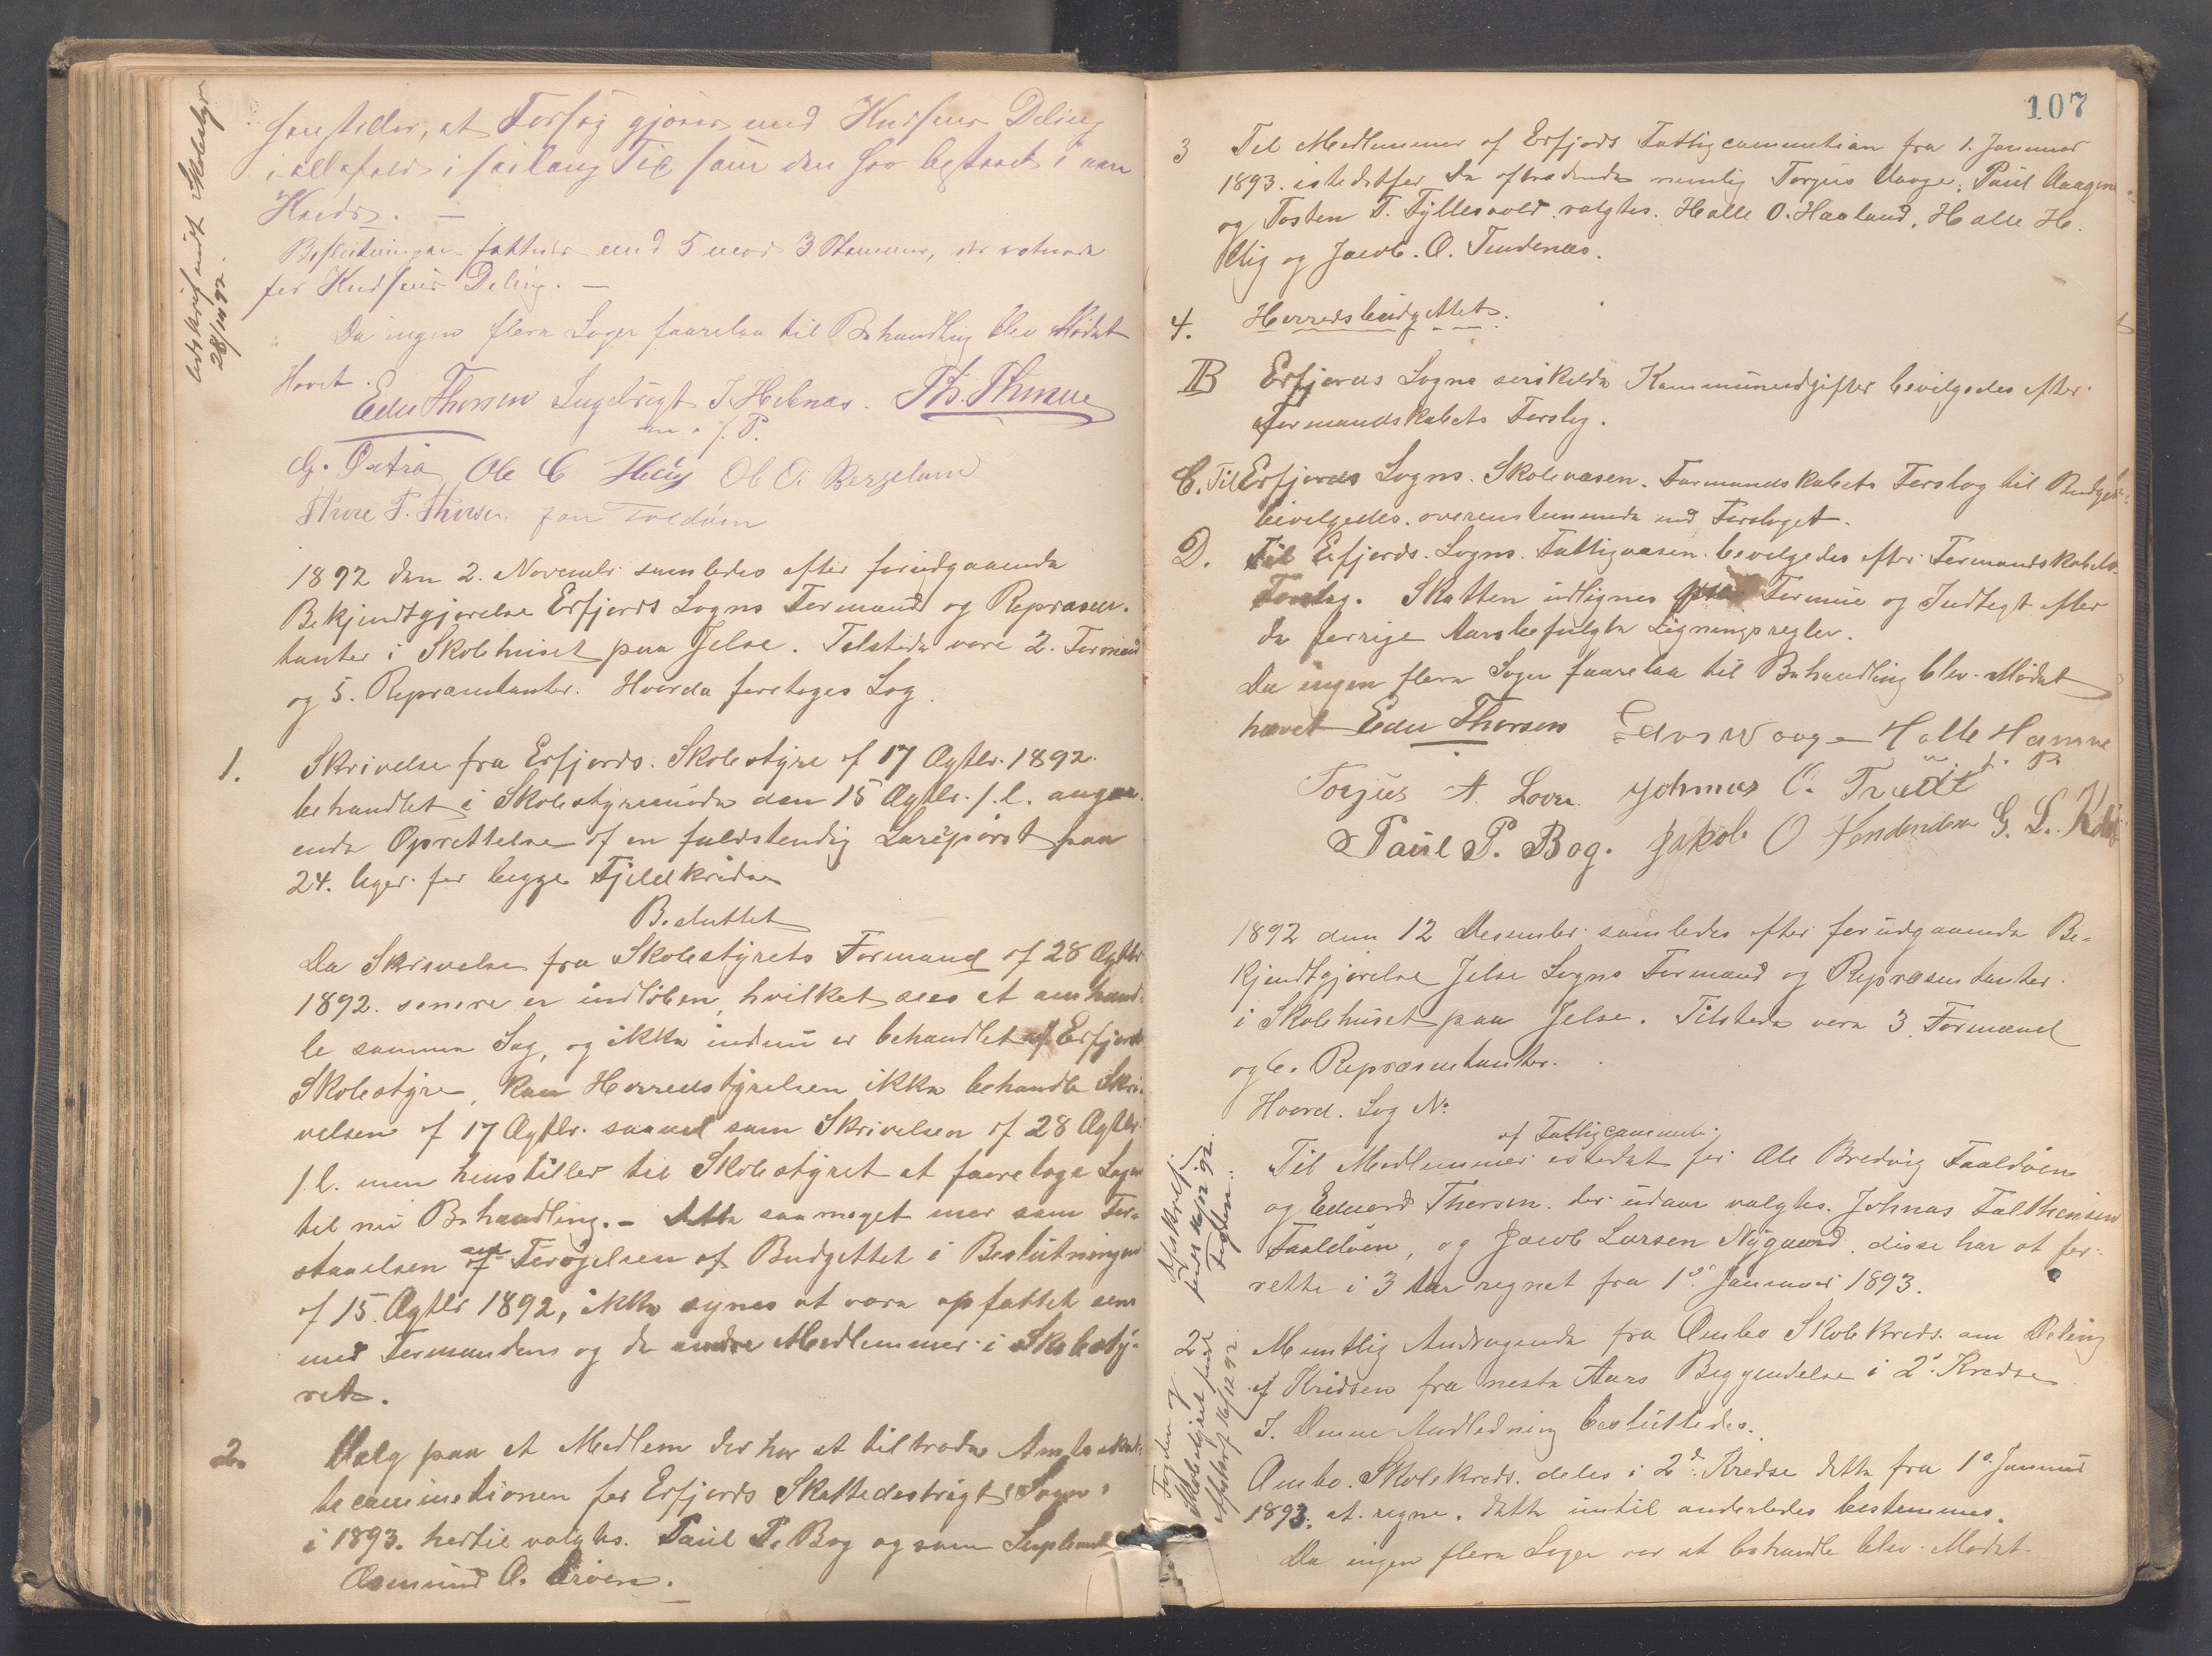 Udskrift sendt Skolestyr
28/10 92.
henstiller, at Forsøg gjøres med Kredsens Deling
i allefald i saa lang Tid som den har bestaaet i een
Kreds. —
Beslutningen fattedes med 5 mod 3 Stemmer, der voterede
for Kredsens Deling. —
Da ingen flere Sager forelaa til Behandling blev Mødet
Hævet.
Edv Thorsen Ingebrigt J. Hebnæs. Th. Thime
m. f. P.
G. Østraa Ole C Ole O. Bergeland
Thore T. Thorsen Jon Foldøen
1892 den 2. Novembr samledes efter forudgaaende
Bekjendtgjørelse Erfjords Sogns Formænd og Repræsen-
tanter i Skolehuset paa Jelse. Tilstede vare 2. Formænd
og 5. Repræsentanter. Hvorda foretoges Sag
1. Skrivelse fra Erfjords. Skolestyre af 17 Ogtbr. 1892.
behandlet i Skolestyremøde den 15 Ogtbr. f.l. angaa-
ende Oprettelse af en fuldstendig Lærepost paa
24. Uger for begge Fjeldkredse
Besluttet
Da Skrivelse fra Skolestyrets Formand af 28 Ogtbr
1892. senere er indløben, hvilket sees at omhand-
le samme Sag, og ikke indnu er behandlet af Erfjords
Skolestyre, kan Herredstyrelsen ikke behandle Skri-
velsen af 17 Ogtbr. saavel som Skrivelsen af 28 Ogtbr.
f.l. men henstiller til Skolestyret at foretage Sagen
til ny Behandling. — Dette saameget mer som For-
staaelsen af Forøgelsen af Budgettet i Beslutningen
af 15 Ogtbr 1892, ikke synes at være opfattet ens
med Formanden og de andre Medlemmer i Skolesty-
ret.
2. Valg paa et Medlem der har at tiltræde Amtsskat-
tecommitionen for Erfjords Skattedestrigt (Sogn)
i 1893. hertil valgtes. Paul P. Bog og som Suplent
Osmund O. Eroen.
107
3 Til Medlemmer af Erfjords Fattigcommition fra 1. Januar
1893. istedetfor de aftrædende nemlig Torjus Vaage, Paul Vaagene
og Tosten T. Tyllesvold. valgtes. Halle O. Haaland, Halle H.
Vig og Jacob. O. Tendenæs.
4. Herredsbudgettet.
B Erfjords Sogns serskildte Kommuneudgifter bevilgedes efter
Formandskabets Forslag.
C. Til Erfjords Sogns. Skolevæsen. Formandskabets Forslag til Budget
bevilgedes. overenstemmende med Forslaget.
D. Til Erfjords. Sogns. Fattigvæsen. bevilgedes efter Formandskabets
Forslag. Skatten udlignes paa Formue og Indtægt efter
de forrige Aars befulgte Ligningsregler.
Da ingen flere Sager forelaa til Behandling blev. Mødet
hævet Edv Thorsen Edvor Vaage Halle Hamme
m. f. P.
Torjus A. Lovra Johnnes O. Tveit
Paul P. Bog. Jakob O Tendenes G. L.
1892 den 12 Desembr samledes efter forudgaaende Be-
kjendtgjørelse Jelse Sogns Formænd og Repræsentanter.
i Skolehuset paa Jelse. Tilstede vare 3 Formænd
og 6. Repræsentanter.
Hvord. Sag No
af Fattigcommiti.
Til Medlemmer istedet for Ole Bredvig Foldøen
og Edvard Thorsen. der udgaar valgtes. Johnas Tolthensen
Foldøen, og Jacob Larsen Nygaard. disse har at for-
rette i 3 Aar regnet fra 1ste Januar 1893.
Afskrift
sendt 16/12 92.
Fogden.
2 Mundtlig Andragende fra Ombo Skolekreds. om Deling
af Kredsen fra neste Aars Begyndelse i 2de Kredse
I. Denne Andledning besluttedes.
Ombo. Skolekreds. deles i 2de Kredse dette fra 1ste Januar
1893. at regne. dette indtil anderledes bestemmes.
Da ingen flere Sager var at behandle blev. Mødet
Fogden og
Skolestyret sendt
Afskrift 16/12 92.